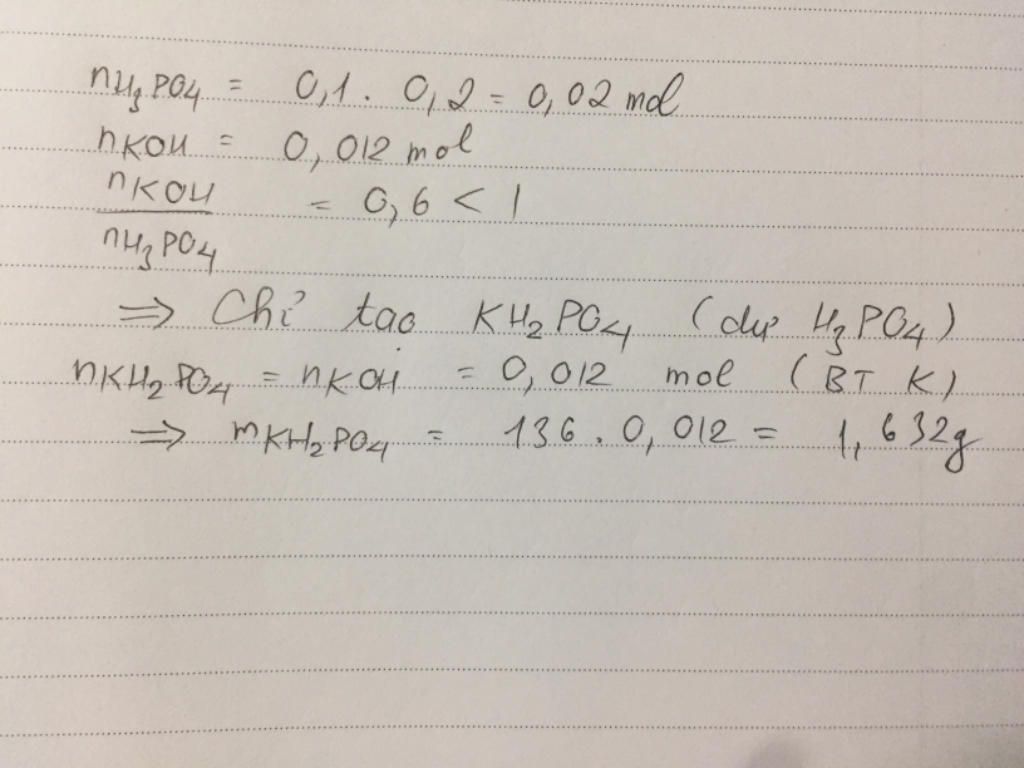 nH₃PO₄ = 0,1 . 0,2 = 0,02 mol
nKOH = 0,012 mol
nKOH / nH₃PO₄ = 0,6 < 1
⇒ Chỉ tạo KH₂PO₄ (dư H₃PO₄)
nKH₂PO₄ = nKOH = 0,012 mol (BT K)
⇒ mKH₂PO₄ = 136 . 0,012 = 1,632g